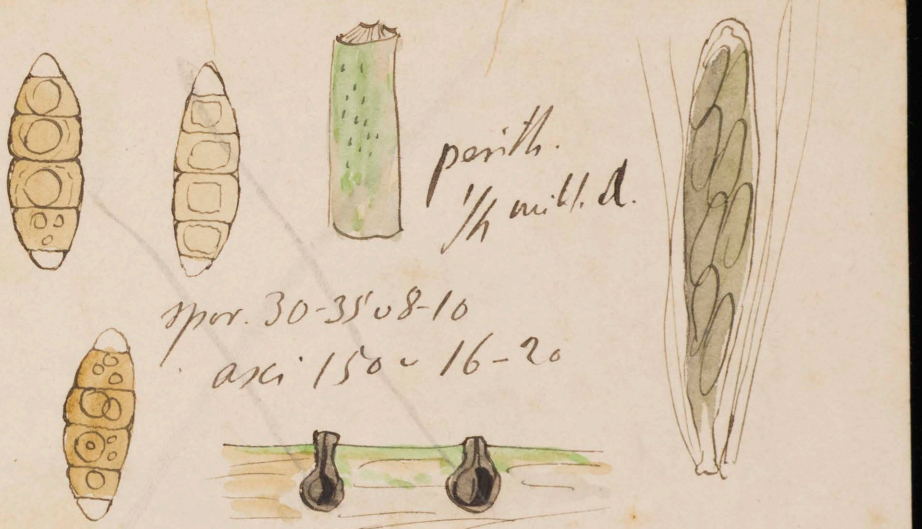 perith.
1/4 mill. d.
spor. 30-35 ᴗ 8-10
asci 150 ᴗ 16-20